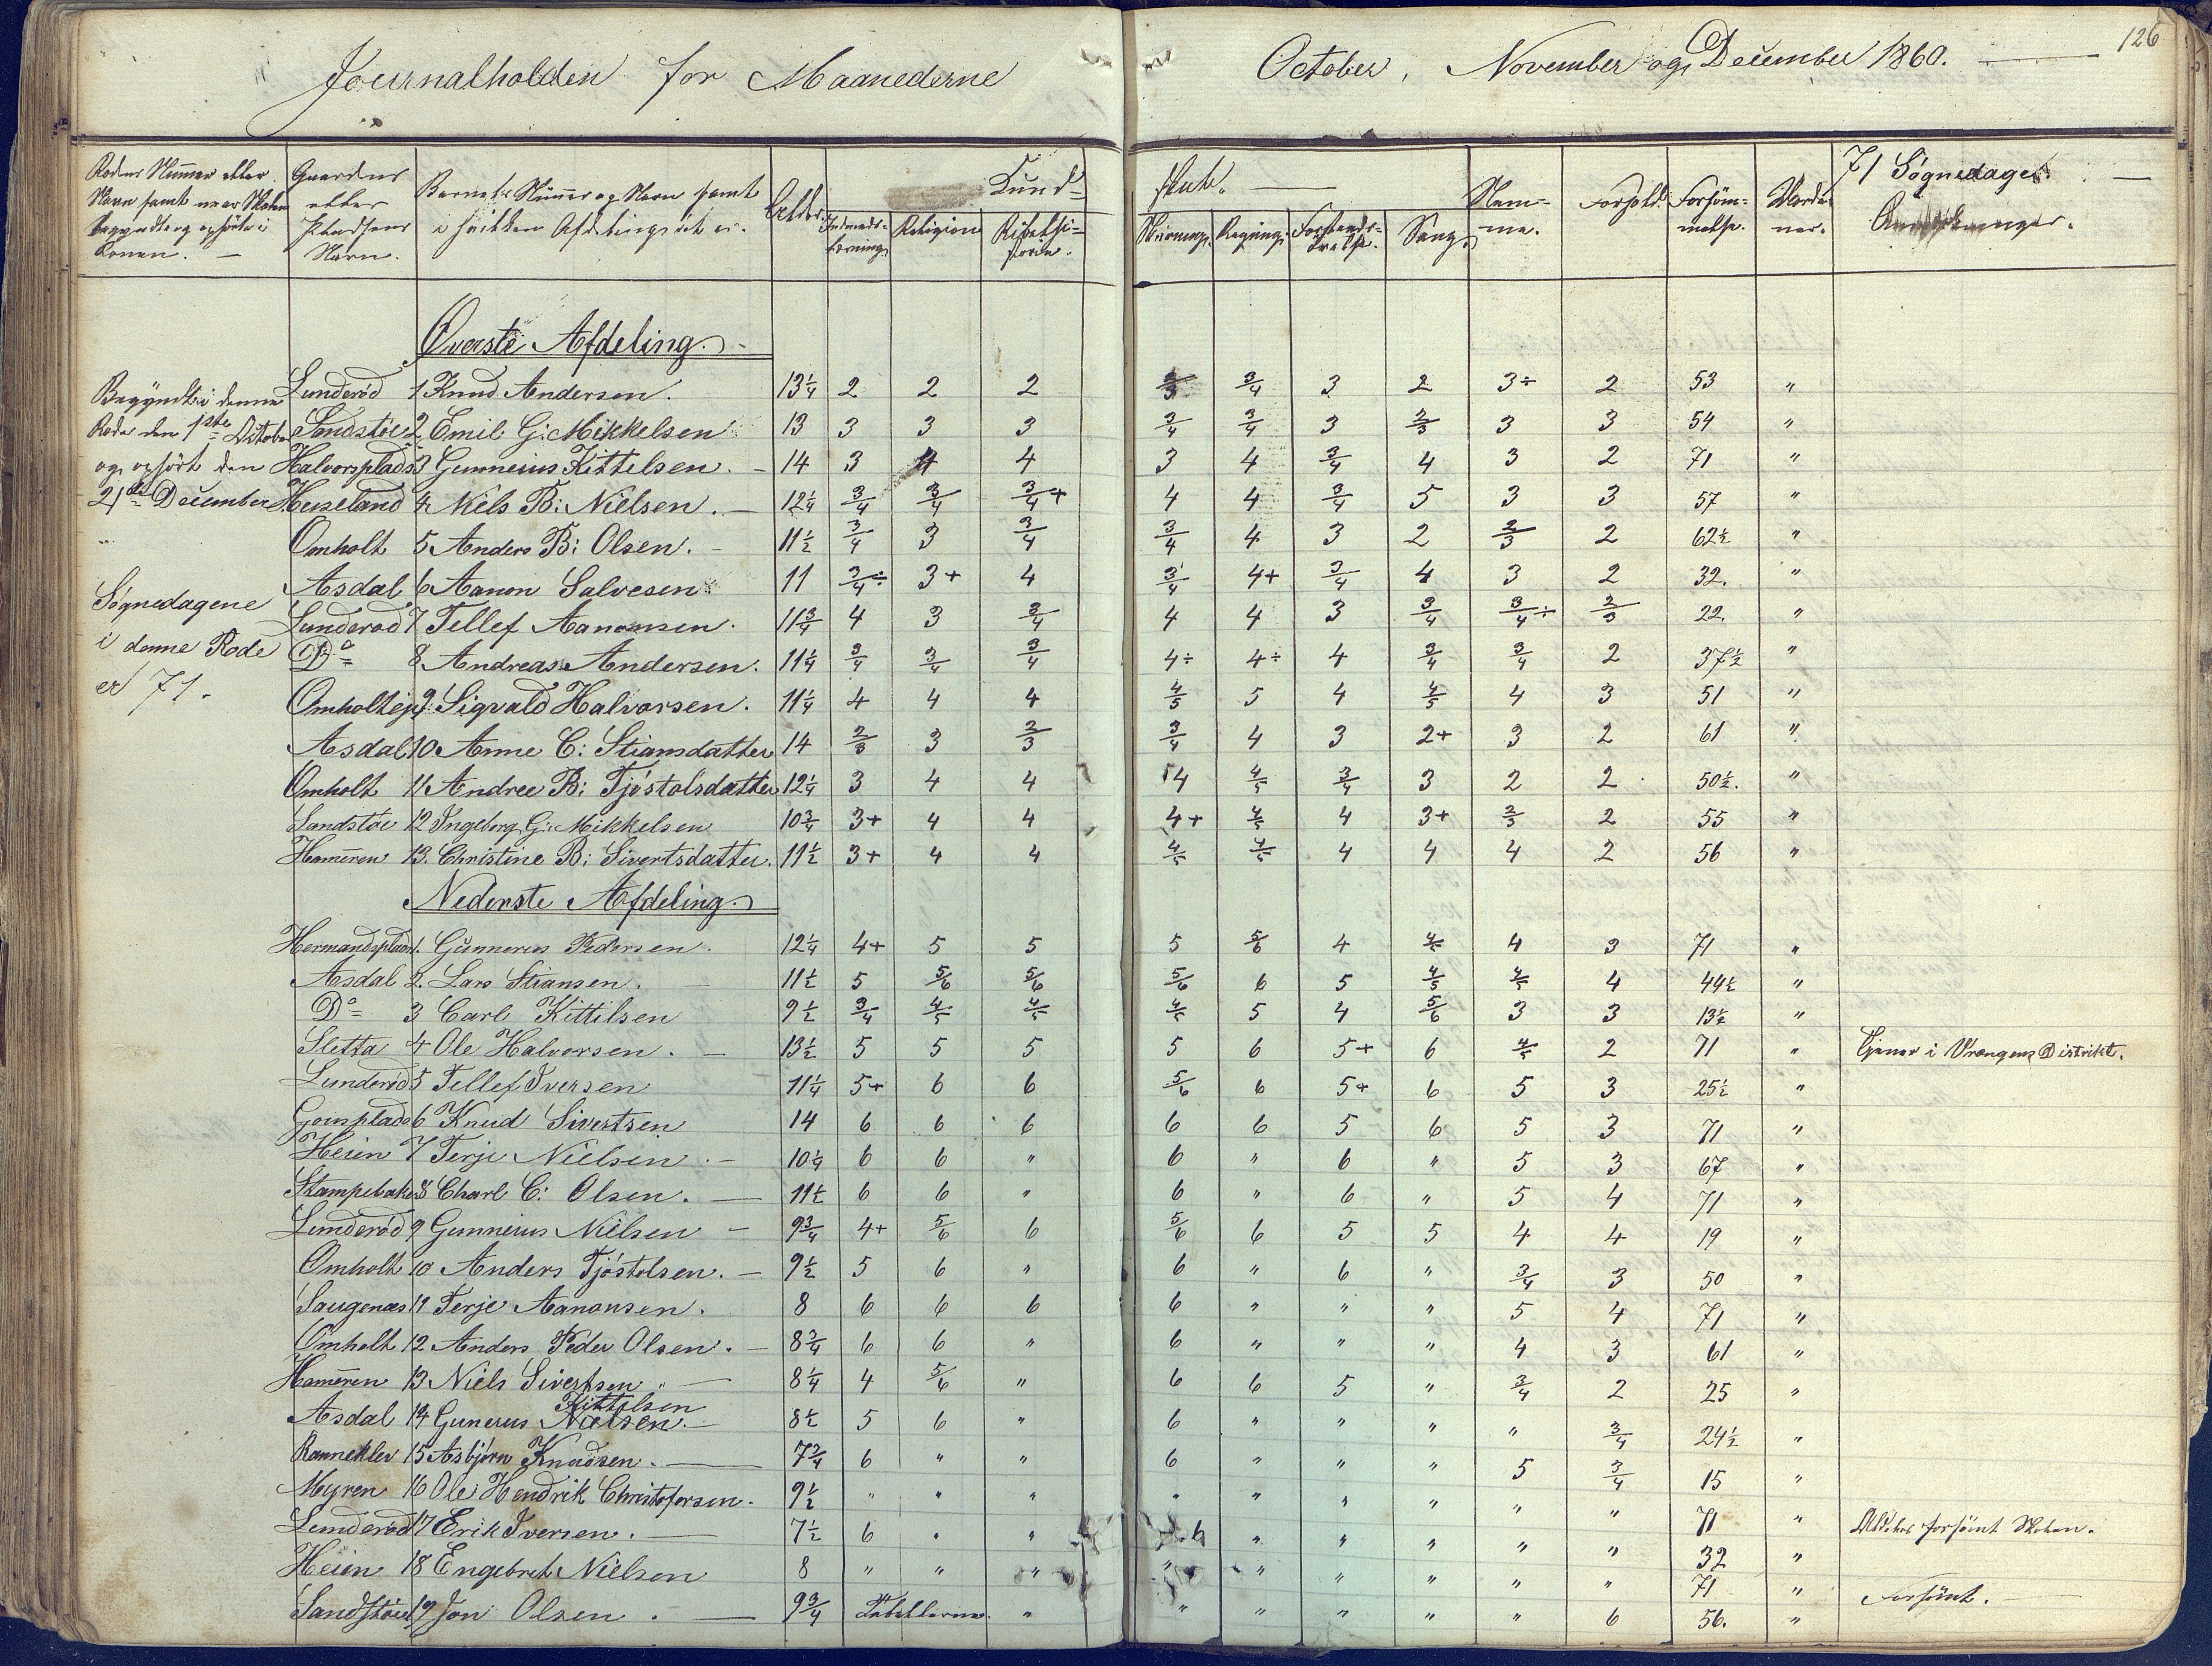 126
Journalholden for Maanederne October, November og December 1860.
Rodens Nummer eller Navn samt naar Skolen begyndte og ophørte i Roden.
Gaardens eller Pladsens Navn.
Barnets Nummer og Navn samt i hvilken Afdeling det er.
Alder.
Kundskab.
Religion
Skrivning.
Regning.
Sang.
Nemme.
Forhold.
Forsømmelse.
71 Søgnedage.
Øverste Afdeling.
Begyndt i denne
Rode den 1ste October
og ophørt den
21de December
Søgnedagene
i denne Rode
er 71.
Lunderød 1 Knud Andersen. 13¼ 2 2 2 2/3 3/4 3 2 3÷ 2 53 "
Sandstøe 2 Emil G: Mikkelsen 13 3 3 3 3/4 3/4 3 2/3 3 3 54 "
Halvorsplads 3 Gunnerius Kittelsen. 14 3 4 4 3 4 3/4 4 3 2 71 "
Huseland 4 Niels B: Nielsen. 12¼ 3/4 3/4 3/4+ 4 4 3/4 5 3 3 57 "
Omholt 5 Anders B: Olsen. 11½ 3/4 3 3/4 3/4 4 3 2 2/3 2 62½ "
Asdal 6 Aanon Salvesen 11 3/4÷ 3+ 4 3/4 4+ 3/4 4 3 2 32. "
Lunderød 7 Tellef Aanonsen. 11¾ 4 3 3/4 4 4 3 3/4 3/4÷ 2/3 22. "
Do 8 Andreas Andersen. 11¼ 3/4 3/4 3/4 4÷ 4÷ 4 3/4 3/4 2 37½ "
Omholtejd 9. Sigvald Halvorsen. 11¼ 4 4 4 4/5 5 4 4/5 4 3 51 "
Asdal 10 Anne C: Stiansdatter 14 2/3 3 2/3 3/4 4 3 2+ 3 2 61 "
Omholt 11 Andree B: Tjøstolsdatter 12¼ 3 4 4 4 4/5 3/4 3 2 2 50½. "
Sandstøe 12 Ingeborg G: Mikkelsen 10¾ 3+ 4 4 4+ 4/5 4 3+ 2/3 2 55 "
Hamren 13. Christine B: Sivertsdatter. 11½ 3+ 4 4 4/5 4/5 4 4 4 2 56 "
Nederste Afdeling.
Hermandsplads 1. Gunnerus Pedersen. 12¼ 4+ 5 5 5 5/6 4 4/5 4 3 71 "
Asdal 2. Lars Stiansen. 11½ 5 5/6 5/6 5/6 6 5 4/5 4/5 4 44½ "
Do 3 Carl Kittilsen 9½ 3/4 4/5 4/5 4/5 5 4 5/6 3 3 13½ "
Sletta 4 Ole Halvorsen. 13½ 5 5 5 5 6 5+ 6 4/5 2 71 " Tjener i Vrængens Distrikt.
Lunderød 5 Tellef Iversen 11¼ 5+ 6 6 5/6 6 5+ 6 5 3 25½ "
6 Knud Sivertsen 14 6 6 6 6 6 5 6 5 3 71 "
Heien 7 Terje Nielsen. 10¼ 6 6 " 6 " 6 " 5 3 67 "
Stampebakken 8 Charl C: Olsen. 11½ 6 6 " 6 " 6 " 5 4 71 "
Lunderød 9 Gunnerus Nielsen 9¾ 4+ 5/6 6 5/6 6 5 5 4 4 19 "
Omholt 10 Anders Tjøstolsen. 9½ 5 6 " 6 " 6 " 3/4 3 50 "
Saugenæs 11 Terje Aanonsen. 8 6 6 6 6 " " " 5 4 71 "
Omholt 12 Anders Peder Olsen. 8¾ 6 6 " 6 " " " 4 3 61 "
Hamren 13 Niels Sivertsen 8¼ 4 5/6 " 6 6 5 " 3/4 2 25 "
Kittelsen
Asdal 14 Gunerus Nielsen. 8½ 5 6 " 6 " " " " 3/4 24½ "
Ranneklev 15 Asbjørn Knudsen. 7¾ 6 " " 6 " " " 5 3/4 15 "
Myren 16 Ole Hendrik Christofersen. 9½ " " " " " " " " " 71 " Aldeles forsømt Skolen.
Lunderød 17 Erik Iversen. 7½ 6 " " 6 " " " " " 32 "
Heien 18 Engebret Nielsen 8 " " " " " " " " " 71 " Forsømt.
Sandstøe 19 Jon Olsen. 9¾ " " " " " " 6 56. "